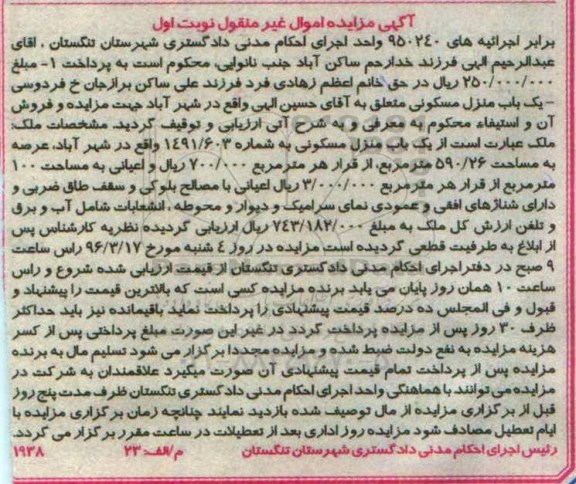 آگهی مزایده اموال غیر منقول نوبت اول
برابر اجرائیه های ۹۵۰۲۴۰ واحد اجرای احکام مدنی دادگستری شهرستان تنگستان ، آقای
عبدالرحیم الهی فرزند خدارحم ساکن آباد جنب نانوایی، محکوم است به پرداخت ۱- مبلغ
۲۵۰/۰۰۰/۰۰۰ ریال در حق خانم اعظم زهادی فرد فرزند علی ساکن برازجان خ فردوسی
- یک باب منزل مسکونی متعلق به آقای حسین الهی واقع در شهر آباد جهت مزایده و فروش
آن و استیفاء محکوم به معرفی و به شرح آتی ارزیابی و توقیف گردید. مشخصات ملک:
ملک عبارت است از یک باب منزل مسکونی به شماره ۱۴۹۱/۶۰۳ واقع در شهر آباد، عرصه
به مساحت ۵۹۰/۲۶ مترمربع، از قرار هر مترمربع ۷۰۰/۰۰۰ ریال و اعیانی به مساحت ۱۰۰
مترمربع از قرار هر مترمربع ۳/۰۰۰/۰۰۰ ریال اعیانی با مصالح بلوکی و سقف طاق ضربی و
دارای شناژهای افقی و عمودی نمای سرامیک و دیوار و محوطه ، انشعابات شامل آب و برق
و تلفن ارزش کل ملک به مبلغ ۷۴۳/۱۸۲/۰۰۰ ریال ارزیابی گردیده نظریه کارشناس پس
از ابلاغ به طرفیت قطعی گردیده است مزایده در روز ۴ شنبه مورخ ۹۶/۳/۱۷ راس ساعت
۹ صبح در دفتر اجرای احکام مدنی دادگستری تنگستان از قیمت ارزیابی شده شروع و راس
ساعت ۱۰ همان روز پایان می یابد برنده مزایده کسی است که بالاترین قیمت را پیشنهاد و
قبول و فی المجلس ده درصد قیمت پیشنهادی را پرداخت نماید باقیمانده نیز باید حداکثر
ظرف ۳۰ روز پس از مزایده پرداخت گردد در غیر این صورت مبلغ پرداختی پس از کسر
هزینه مزایده به نفع دولت ضبط شده و مزایده مجددا برگزار می شود تسلیم مال به برنده
مزایده پس از پرداخت تمام قیمت پیشنهادی آن صورت میگیرد علاقمندان به شرکت در
مزایده می توانند با هماهنگی واحد اجرای احکام مدنی دادگستری تنگستان ظرف مدت پنج روز
قبل از برگزاری مزایده از مال توصیف شده بازدید نمایند چنانچه زمان برگزاری مزایده با
ایام تعطیل مصادف شود مزایده روز اداری بعد از تعطیلات در ساعت مقرر برگزار می گردد.
رئیس اجرای احکام مدنی دادگستری شهرستان تنگستان م/الف: ۲۳ ۱۹۳۸